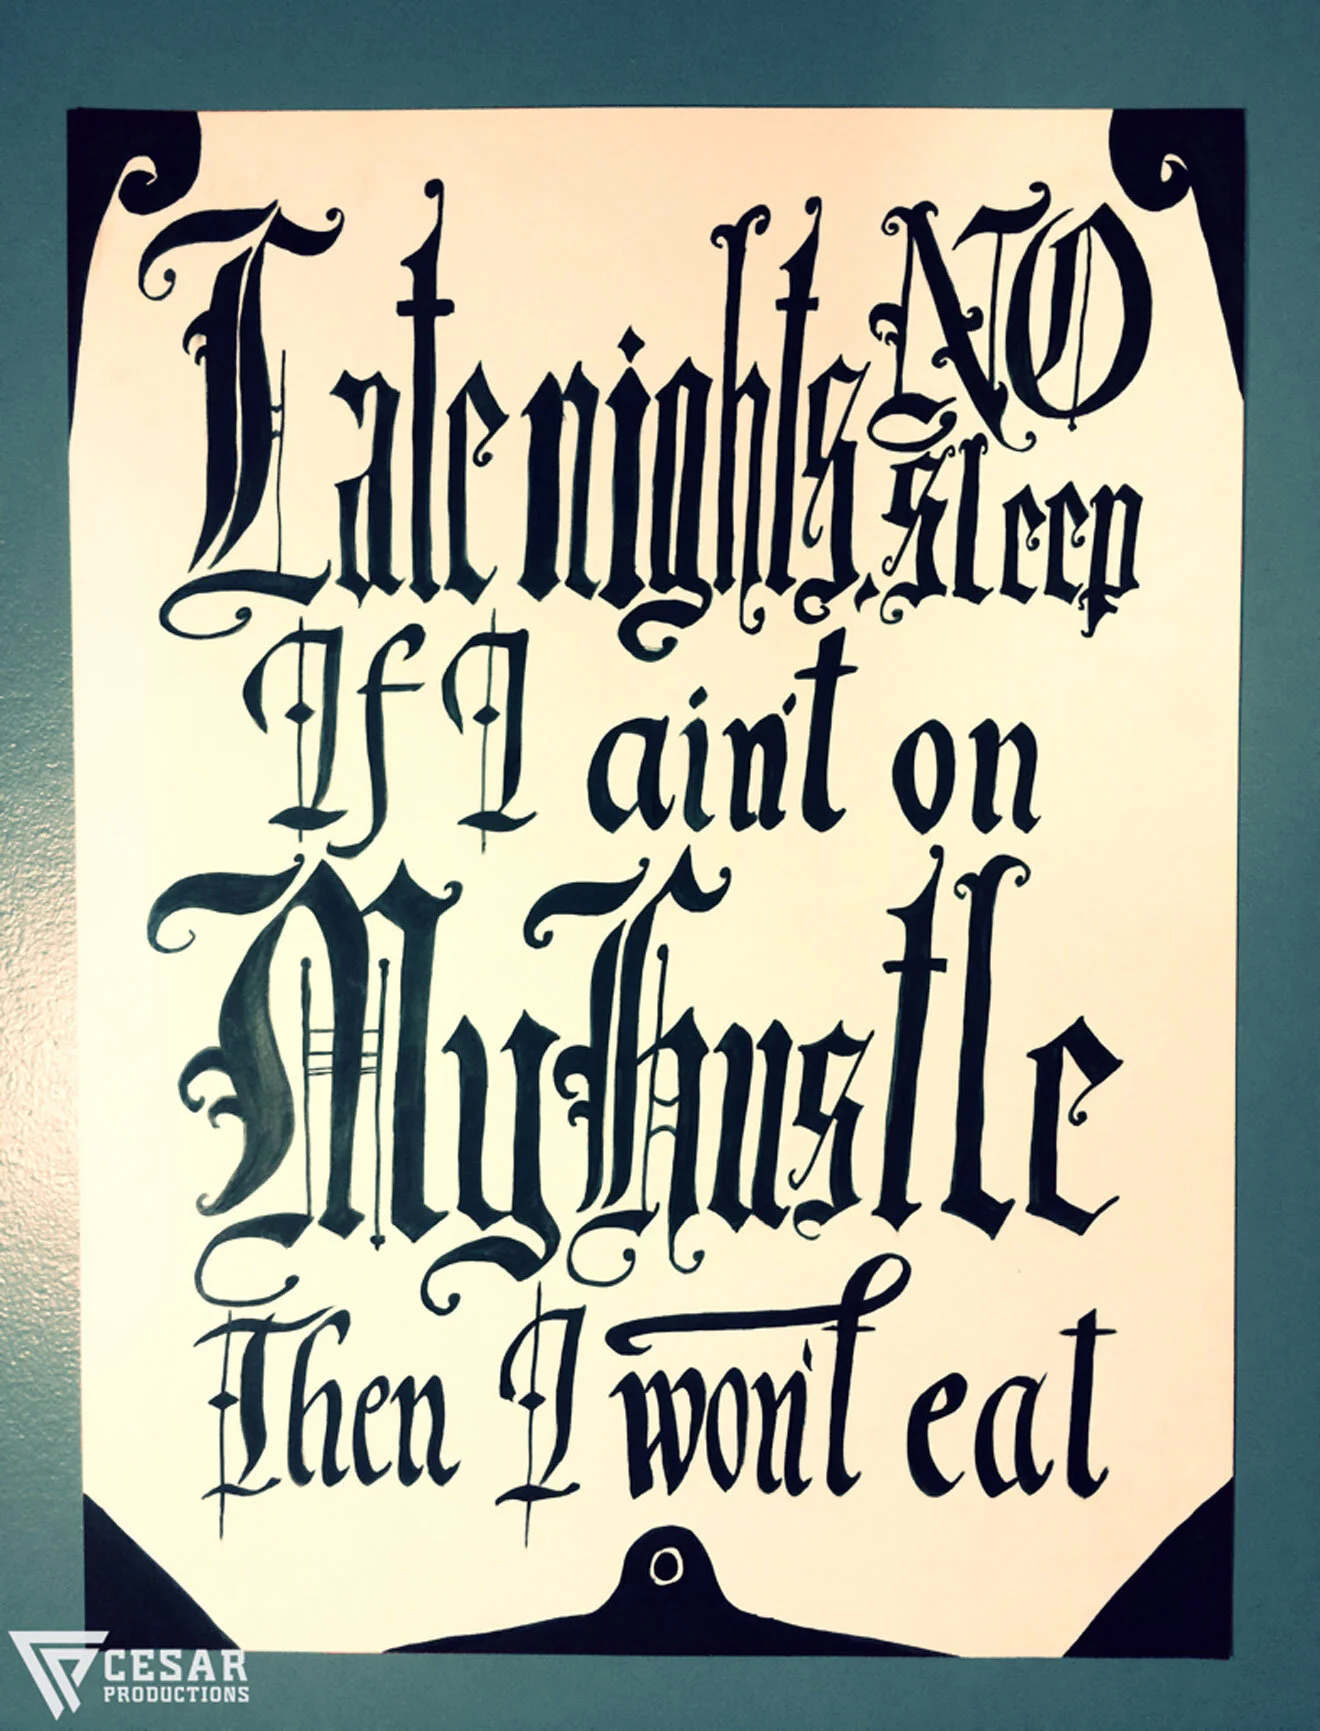 Late nights, NO
sleep
If I ain't on
My Hustle
Then I won't eat
CESAR
PRODUCTIONS